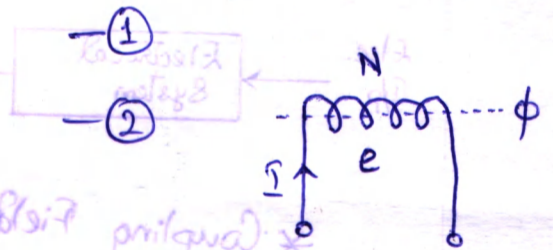 — ①
— ②
N
e
I
ϕ